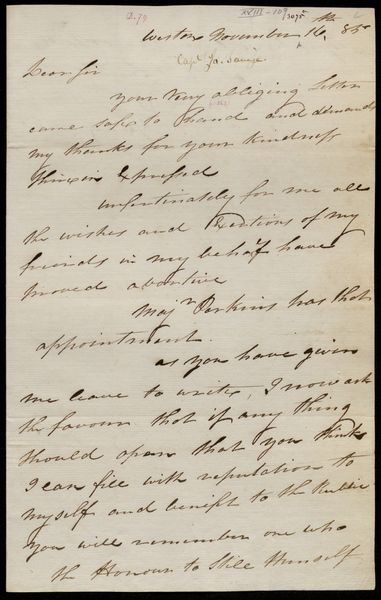 D.79
XVIII-109/3075
Weston November 16th, 85
Capt Ja. Savage
Dear Sir
your very obliging Letter
came safe to hand and demands
my thanks for your kindness
therein Expressed
unfortunately for me all
the wishes and Exertions of my
freinds in my behalf have
proved abortive
Majr Perkins has that
appointment.
as you have given
me leave to write, I now ask
the favour that if any thing
should open that you think
I can fill with reputation to
myself and benefit to the Publick
you will remember one who
the Honour to stile himself